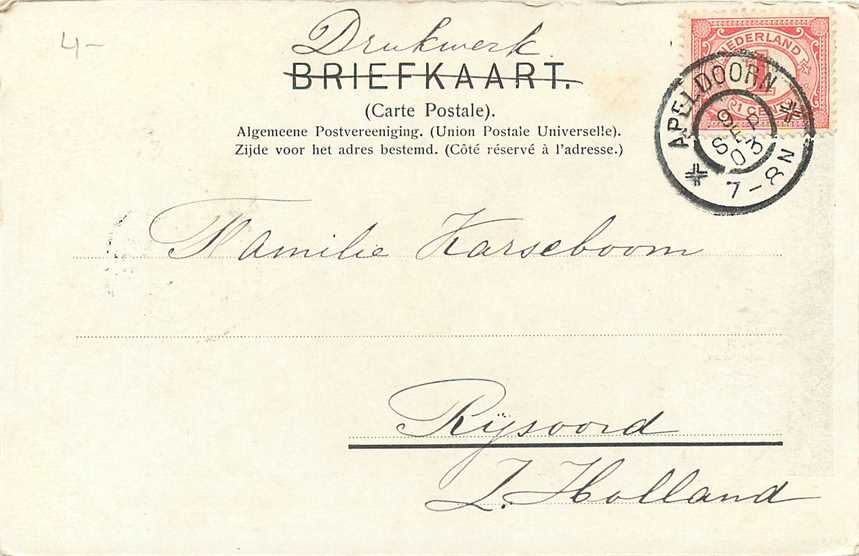 4-
Drukwerk
BRIEFKAART.
(Carte Postale).
Algemeene Postvereeniging. (Union Postale Universelle).
Zijde voor het adres bestemd. (Côté réservé à l'adresse.)
NEDERLAND
1
CENT
APELDOORN
9
SEP
03
7-8N
Familie Karseboom
Rijsoord
Z. Holland